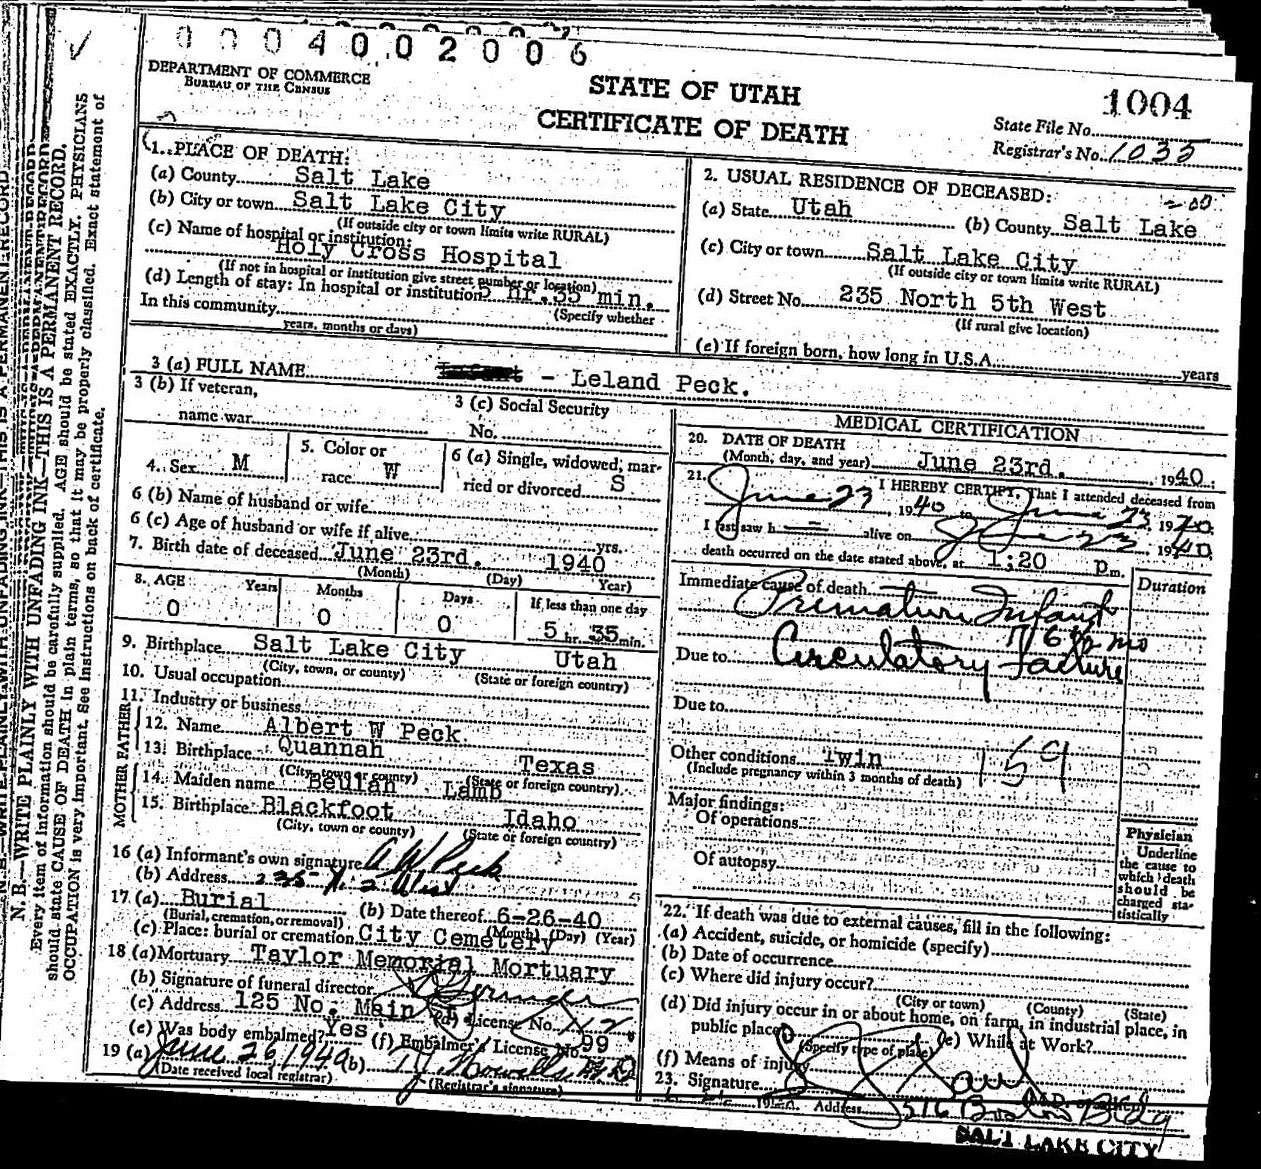 0004002006
DEPARTMENT OF COMMERCE
BUREAU OF THE CENSUS
STATE OF UTAH
CERTIFICATE OF DEATH
1004
State File No.
Registrar's No. 1035
1. PLACE OF DEATH:
(a) County Salt Lake
(b) City or town Salt Lake City
(If outside city or town limits write RURAL)
(c) Name of hospital or institution:
Holy Cross Hospital
(If not in hospital or institution give street number or location)
(d) Length of stay: In hospital or institution 5 hr. 35 min.
(Specify whether
In this community
years, months or days)
2. USUAL RESIDENCE OF DECEASED:
(a) State Utah (b) County Salt Lake
(c) City or town Salt Lake City
(If outside city or town limits write RURAL)
(d) Street No. 235 North 5th West
(If rural give location)
(e) If foreign born, how long in U.S.A. years
3 (a) FULL NAME Infant - Leland Peck.
3 (b) If veteran,
name war
3 (c) Social Security
No.
4. Sex M
5. Color or
race W
6 (a) Single, widowed, mar-
ried or divorced S
6 (b) Name of husband or wife
6 (c) Age of husband or wife if alive yrs.
7. Birth date of deceased June 23rd. 1940
(Month) (Day) Year)
8. AGE Years Months Days If less than one day
0 0 0 5 hr. 35 min.
9. Birthplace Salt Lake City Utah
(City, town, or county) (State or foreign country)
10. Usual occupation
11. Industry or business
FATHER
12. Name Albert W Peck
13. Birthplace Quannah Texas
(City, town or county) (State or foreign country)
MOTHER
14. Maiden name Beulah Lamb
15. Birthplace Blackfoot Idaho
(City, town or county) (State or foreign country)
16 (a) Informant's own signature A W Peck
(b) Address 235 N. 5 West
17. (a) Burial (b) Date thereof 6-26-40
(Burial, cremation, or removal) (Month) (Day) (Year)
(c) Place: burial or cremation City Cemetery
18 (a) Mortuary Taylor Memorial Mortuary
(b) Signature of funeral director
(c) Address 125 No. Main St. (d) License No. 112
(e) Was body embalmed? Yes (f) Embalmer's License No. 99
19 (a) June 26, 1940 (b)
(Date received local registrar) (Registrar's signature)
MEDICAL CERTIFICATION
20. DATE OF DEATH
(Month, day, and year) June 23rd. 1940
21. I HEREBY CERTIFY, That I attended deceased from
June 23, 1940 to June 23, 1940
I last saw h alive on June 23 1940
death occurred on the date stated above, at 1:20 p.m.
Immediate cause of death Duration
Premature Infant
6 1/2 mo
Due to Circulatory Failure
Due to
Other conditions Twin 159
(Include pregnancy within 3 months of death)
Major findings:
Of operations
Of autopsy
Physician
Underline
the cause to
which death
should be
charged sta-
tistically
22. If death was due to external causes, fill in the following:
(a) Accident, suicide, or homicide (specify)
(b) Date of occurrence
(c) Where did injury occur?
(City or town) (County) (State)
(d) Did injury occur in or about home, on farm, in industrial place, in
public place?
(Specify type of place) (e) While at Work?
(f) Means of injury
23. Signature
Address 516 Boston Bldg
SALT LAKE CITY
N. B.—WRITE PLAINLY WITH UNFADING INK—THIS IS A PERMANENT RECORD.
Every item of information should be carefully supplied. AGE should be stated EXACTLY. PHYSICIANS
should state CAUSE OF DEATH in plain terms, so that it may be properly classified. Exact statement of
OCCUPATION is very important. See instructions on back of certificate.